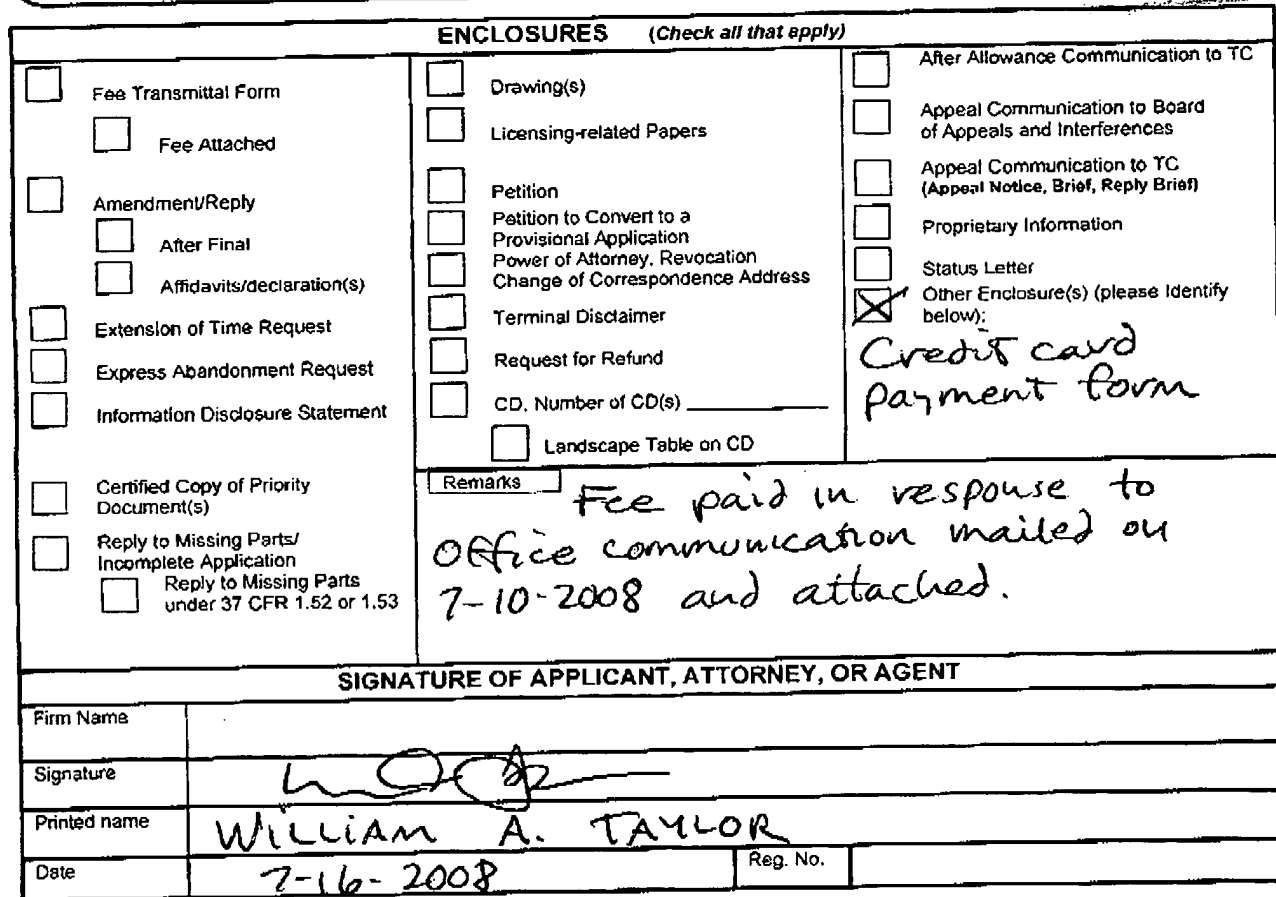 ENCLOSURES (Check all that apply)
Fee Transmittal Form
Fee Attached
Amendment/Reply
After Final
Affidavits/declaration(s)
Extension of Time Request
Express Abandonment Request
Information Disclosure Statement
Certified Copy of Priority
Document(s)
Reply to Missing Parts/
Incomplete Application
Reply to Missing Parts
under 37 CFR 1.52 or 1.53
Drawing(s)
Licensing-related Papers
Petition
Petition to Convert to a
Provisional Application
Power of Attorney, Revocation
Change of Correspondence Address
Terminal Disclaimer
Request for Refund
CD, Number of CD(s) ___________
Landscape Table on CD
After Allowance Communication to TC
Appeal Communication to Board
of Appeals and Interferences
Appeal Communication to TC
(Appeal Notice, Brief, Reply Brief)
Proprietary Information
Status Letter
Other Enclosure(s) (please Identify
below):
Credit card
payment form
Remarks
Fee paid in response to
Office communication mailed on
7-10-2008 and attached.
SIGNATURE OF APPLICANT, ATTORNEY, OR AGENT
Firm Name
Signature
Printed name WILLIAM A. TAYLOR
Date 7-16-2008 Reg. No.